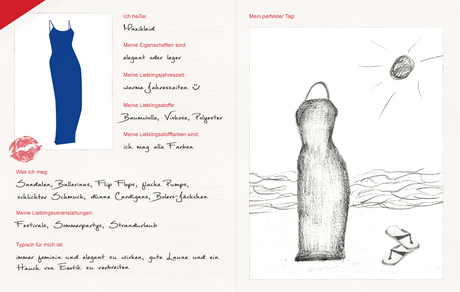 Ich heiße:
Maxikleid
Meine Eigenschaften sind:
elegant oder leger
Meine Lieblingsjahreszeit:
warme Jahreszeiten ☺
Meine Lieblingsstoffe:
Baumwolle, Viskose, Polyester
Meine Lieblingsstofffarben sind:
ich mag alle Farben
Was ich mag:
Sandalen, Ballerinas, Flip Flops, flache Pumps,
schlichter Schmuck, dünne Cardigans, Bolero-Jäckchen
Meine Lieblingsveranstaltungen:
Festivals, Sommerpartys, Strandurlaub
Typisch für mich ist:
immer feminin und elegant zu wirken, gute Laune und ein
Hauch von Exotik zu verbreiten
Mein perfekter Tag: